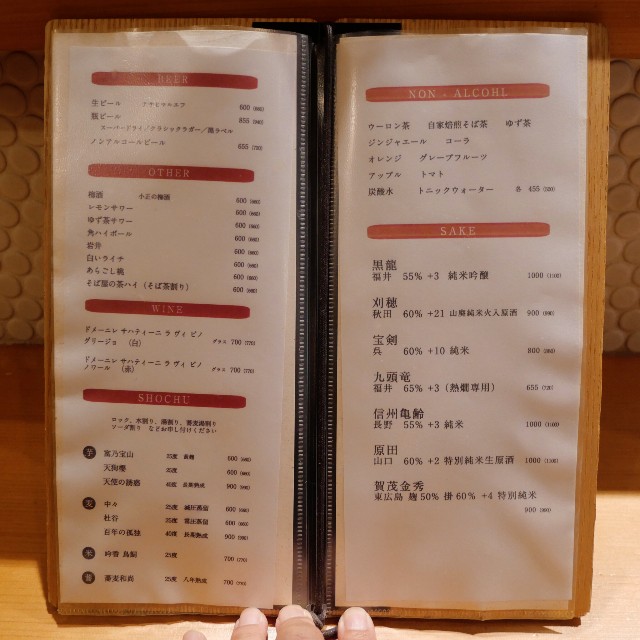 BEER
生ビール アサヒマルエフ 600 (660)
瓶ビール 855 (940)
スーパードライ/クラシックラガー/黒ラベル
ノンアルコールビール 655 (720)
OTHER
梅酒 小正の梅酒 600 (660)
レモンサワー 600 (660)
ゆず茶サワー 600 (660)
角ハイボール 600 (660)
岩井 600 (660)
白いライチ 600 (660)
あらごし桃 600 (660)
そば屋の茶ハイ(そば茶割り) 600 (660)
WINE
ドメーニレ サハティーニ ラ ヴィ ピノ
グリージョ (白) グラス 700 (770)
ドメーニレ サハティーニ ラ ヴィ ピノ
ノワール (赤) グラス 700 (770)
SHOCHU
ロック、水割り、湯割り、蕎麦湯割り
ソーダ割り などお申し付けください
芋 富乃宝山 25度 黄麹 600 (660)
天狗櫻 25度 600 (660)
天使の誘惑 40度 長期熟成 900 (990)
麦 中々 25度 減圧蒸留 600 (660)
杜谷 25度 常圧蒸留 600 (660)
百年の孤独 40度 長期熟成 900 (990)
米 吟香 鳥飼 25度 700 (770)
蕎麦和尚 25度 八年熟成 700 (770)
NON - ALCOHL
ウーロン茶 自家焙煎そば茶 ゆず茶
ジンジャエール コーラ
オレンジ グレープフルーツ
アップル トマト
炭酸水 トニックウォーター 各 455 (500)
SAKE
黒龍
福井 55% +3 純米吟醸 1000 (1100)
刈穂
秋田 60% +21 山廃純米火入原酒 900 (990)
宝剣
呉 60% +10 純米 800 (880)
九頭竜
福井 65% +3 (熱燗専用) 655 (720)
信州亀齢
長野 55% +3 純米 1000 (1100)
原田
山口 60% +2 特別純米生原酒 1000 (1100)
賀茂金秀
東広島 麹50% 掛60% +4 特別純米
900 (990)